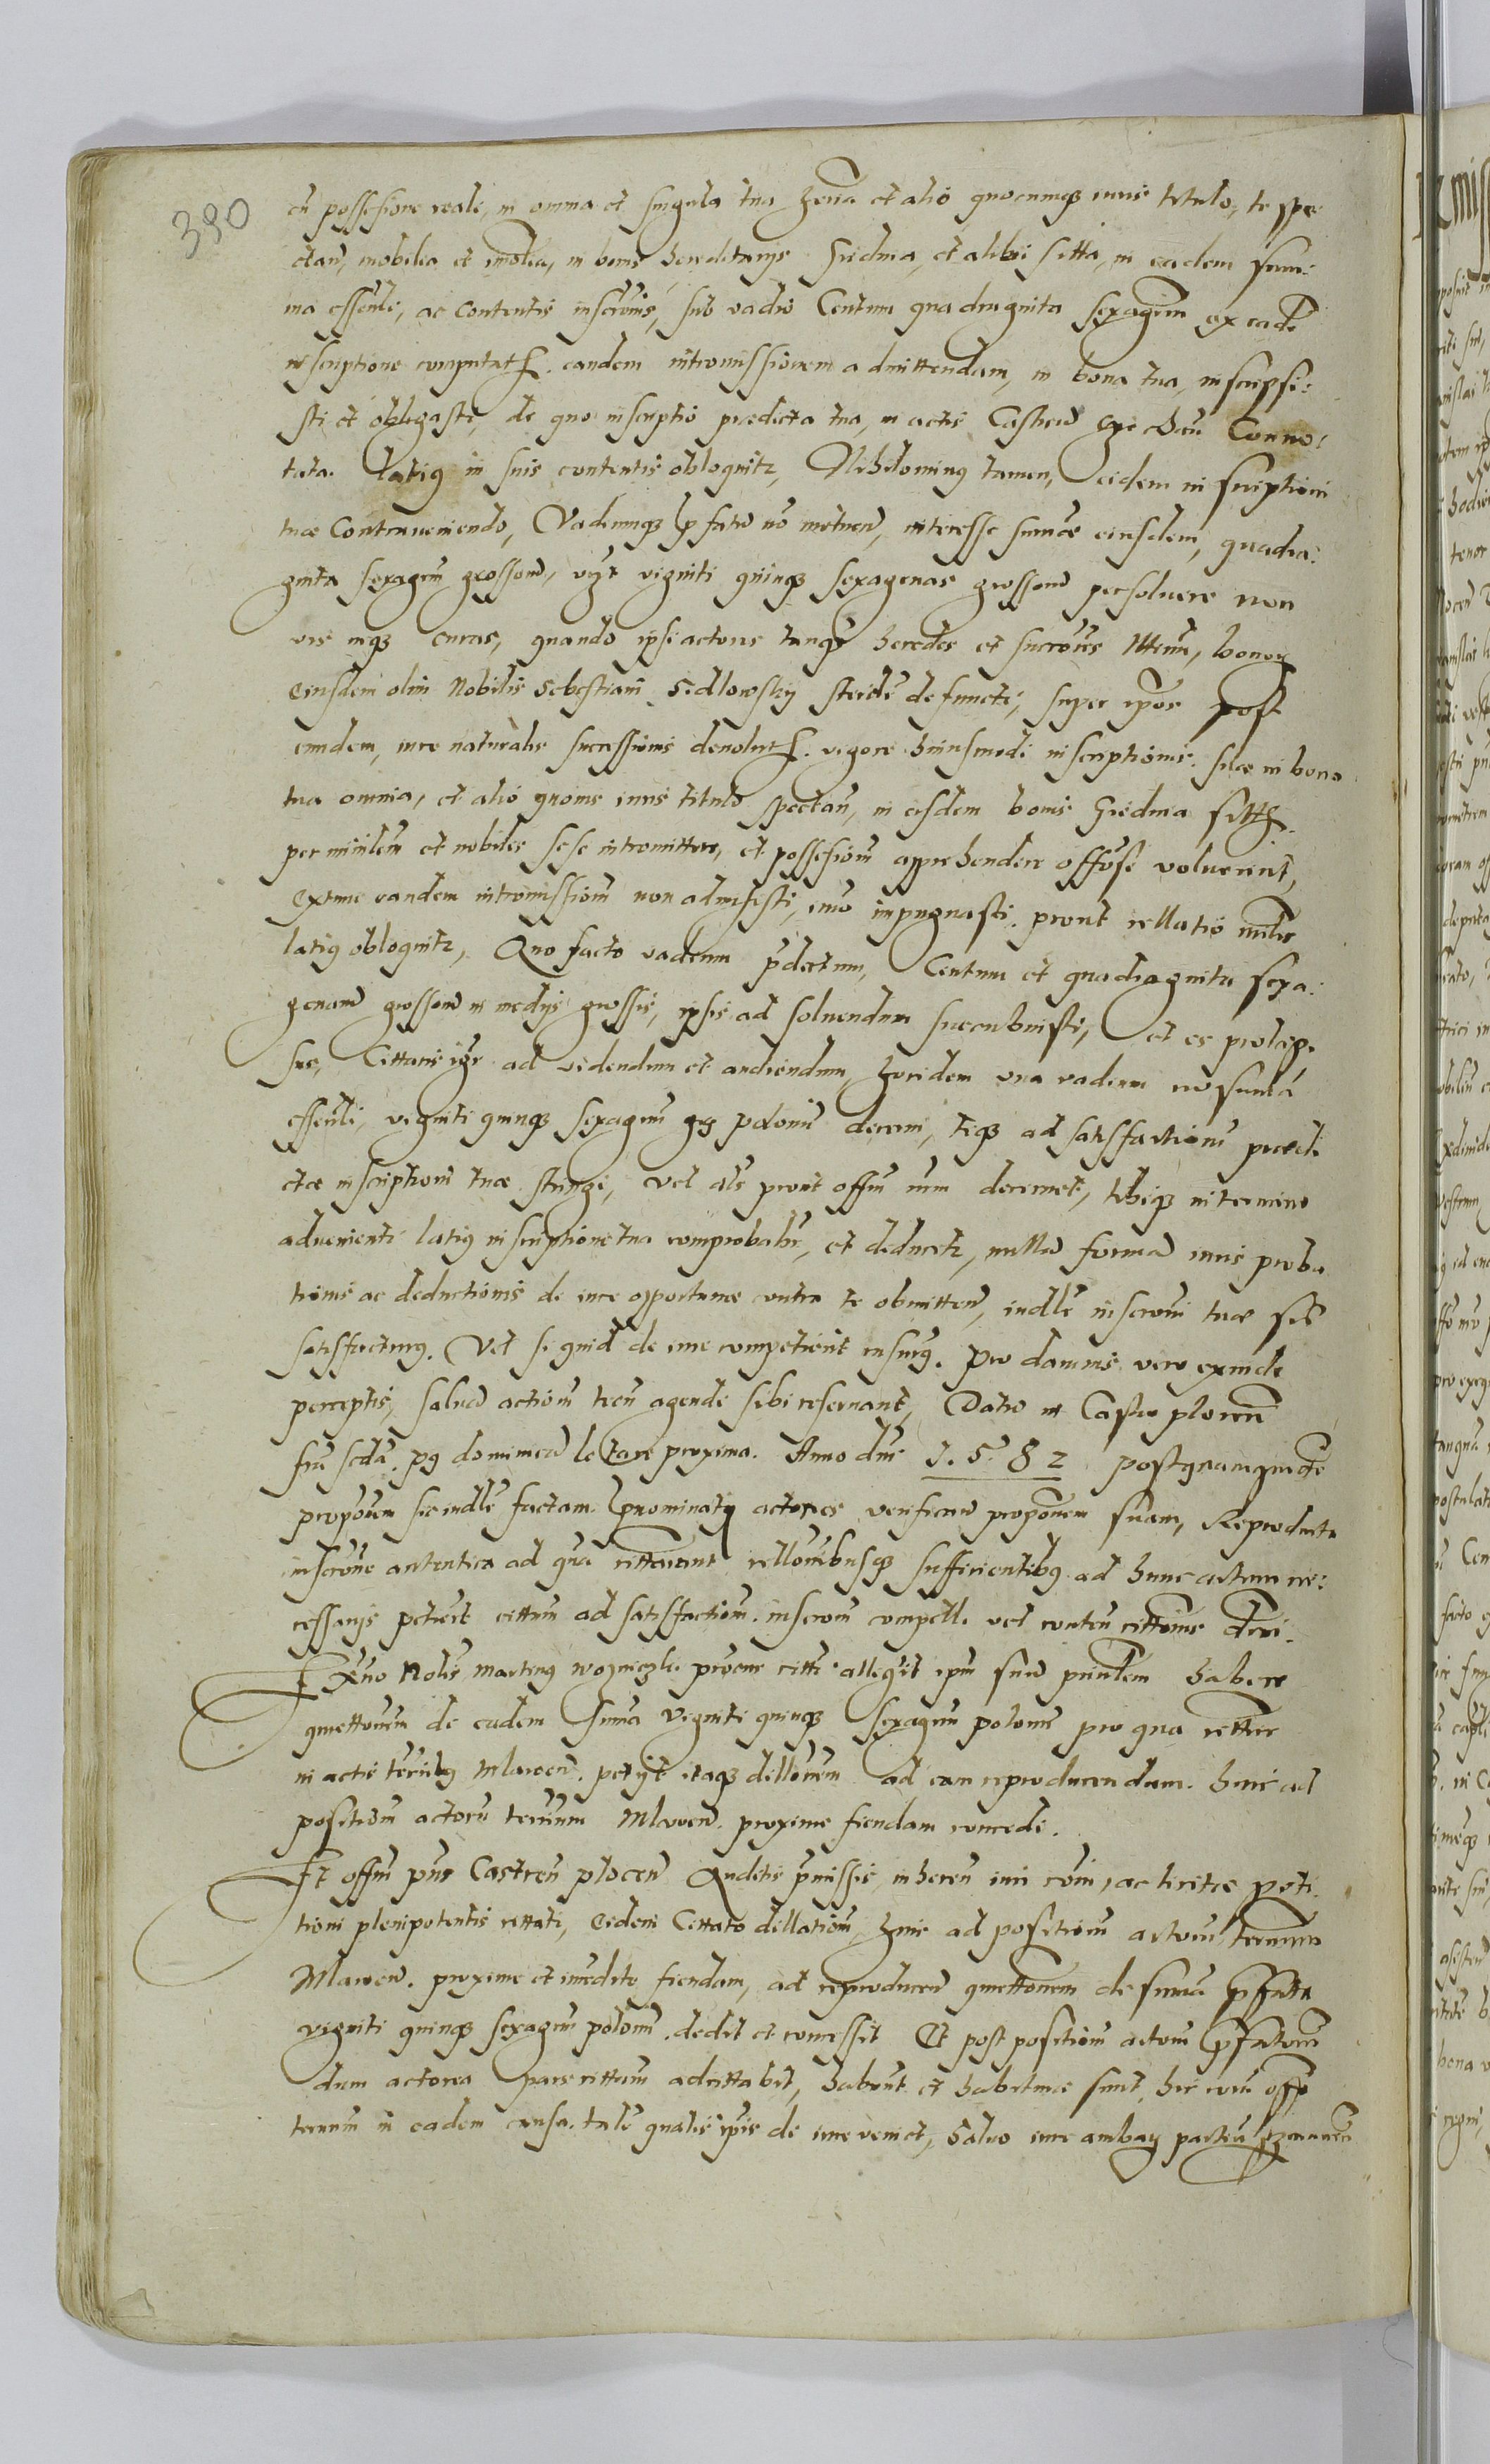 390
cū possesione reale, in omnia et singula tua gen̄a et alio quocunq3 iuris titulo, te spe
ctan̄, mobilia et imōlia, in bonis hereditarijs Giedma, et alibi sitta, in eadem sum:
ma essen̄li, ac contentis inscrōnis, sub vadio Centum quadraginta sexagēn ex eadē
inscriptione computat. eandem intromissionem admittendam, in bona tua, inscripsi:
sti et obligasti, de quo inscriptio predicta tua, in actis Castren̄ Conno:
tata. Latius in suis contentis obloquitr, Nihilominus tamen, eidem inscriptioni
tuæ Contraveniendo, Vadiumq3 p̄fatū nō metuen̄, interesse summæ eiusdem, quadra:
ginta sexagēn grossorū, vigīt viginti quinq3 sexagenas grossorū persoluere non
vis neq3 curas, quando ipsi actores tanq̄ heredes et succrēs bonor
Eiusdem olim Nobilis Sebestiani Sedlowsky sterilē defuncti, super ip̄os post
eundem, iure naturalis successionis devolut. vigore huiusmodi inscriptionis. suæ in bona
tua omnia, et alio quovis iuris titulo spectan̄, in eisdem bonis Giedma sitta.
per minīlem et nobiles sese intromittere, et possesionē apprehendere offōse voluerint,
extunc eandem intromissionē non admisisti, imo impugnasti. prout rellatio minīlis
latius obloquitr, Quo facto vadium p̄dictum, Centum et quadraginta sexa:
genarū grossorū in medijs grossis, ipsis ad soluendum succubuisti, et es prolap:
sus, Cittaris igr̄ ad videndum et audiendum, hoc idem una vadium cū summa
essen̄li, viginti quinq3 sexagēn grs polonic̄ decerni, teq3 ad satisfactionē præd
ctæ inscriptioni tuæ stringi, vel als prout offm̄ num decernet, tibiq3 in termino
adveniente latius inscriptione tua comprobabr̄, et deducetr, nullū formā iuris proba
tionis ac deductionis de iure opportunæ contra te obmitten̄, iudlē inscrōni tuæ
satisfacturus. Vel si quid de iure competierit insurg. Pro damnis vero exinde
perceptis, saluā actionē tecū agendi sibi reservant, Datū in Castro plocen̄
fria scda. p9 dominicā letare proxima. Anno dni 1. 5. 8 2 postquamquidē
propōnem sic iudlē factam p̄nominati actores verifican̄ propōnem suam, Reproducta
inscrōne autentica ad qua cittarant rellōnibusq3 sufficientibus ad hunc actum ne:
cessarijs petierit cittum ad satisfactionē. inscrōni compelli. vel conten̄ cittōnis decri.
Ex uno Nobis Martinus wozniczki procur citti allegavit ipm̄ suū prin̄lem habere
quiettōnem de eadem suma viginti quinq3 sexagēn polonic pro qua cittur
in actis trr̄ibus Mlaven̄. petijt itaq3 dillōnem ad eam reproducendam. hinc ad
positionē actorū terrium Mlaven̄. proxime fiendam concedi.
Et offm̄ prns Castren̄ plocen̄ Auditis p̄missis, inheren̄ iuri cōmi, ac licitæ peti
tioni plenipotentis cittati, eidem Cittato dillationē, hinc ad positionē actorū terrium
Mlaven̄. proxime et īmediate fiendam, ad reproducen̄ quiettōnem de suma p̄fatta
viginti quinq3 sexagēn polonic. dedit et concessit Et post positionē actorū p̄fatorū
dum actorea pars cittum adcittabit, habent et habituræ sunt, hic corā offo
terminū in eadem causa. talē qualis ip̄is de iure veniet, Salvo iure ambar partiū permanen̄